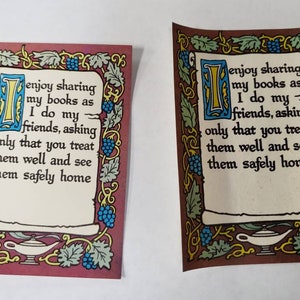 I enjoy sharing
my books as
I do my
friends, asking
only that you treat
them well and see
them safely home
I enjoy sharing
my books as
I do my
friends, asking
only that you treat
them well and see
them safely home